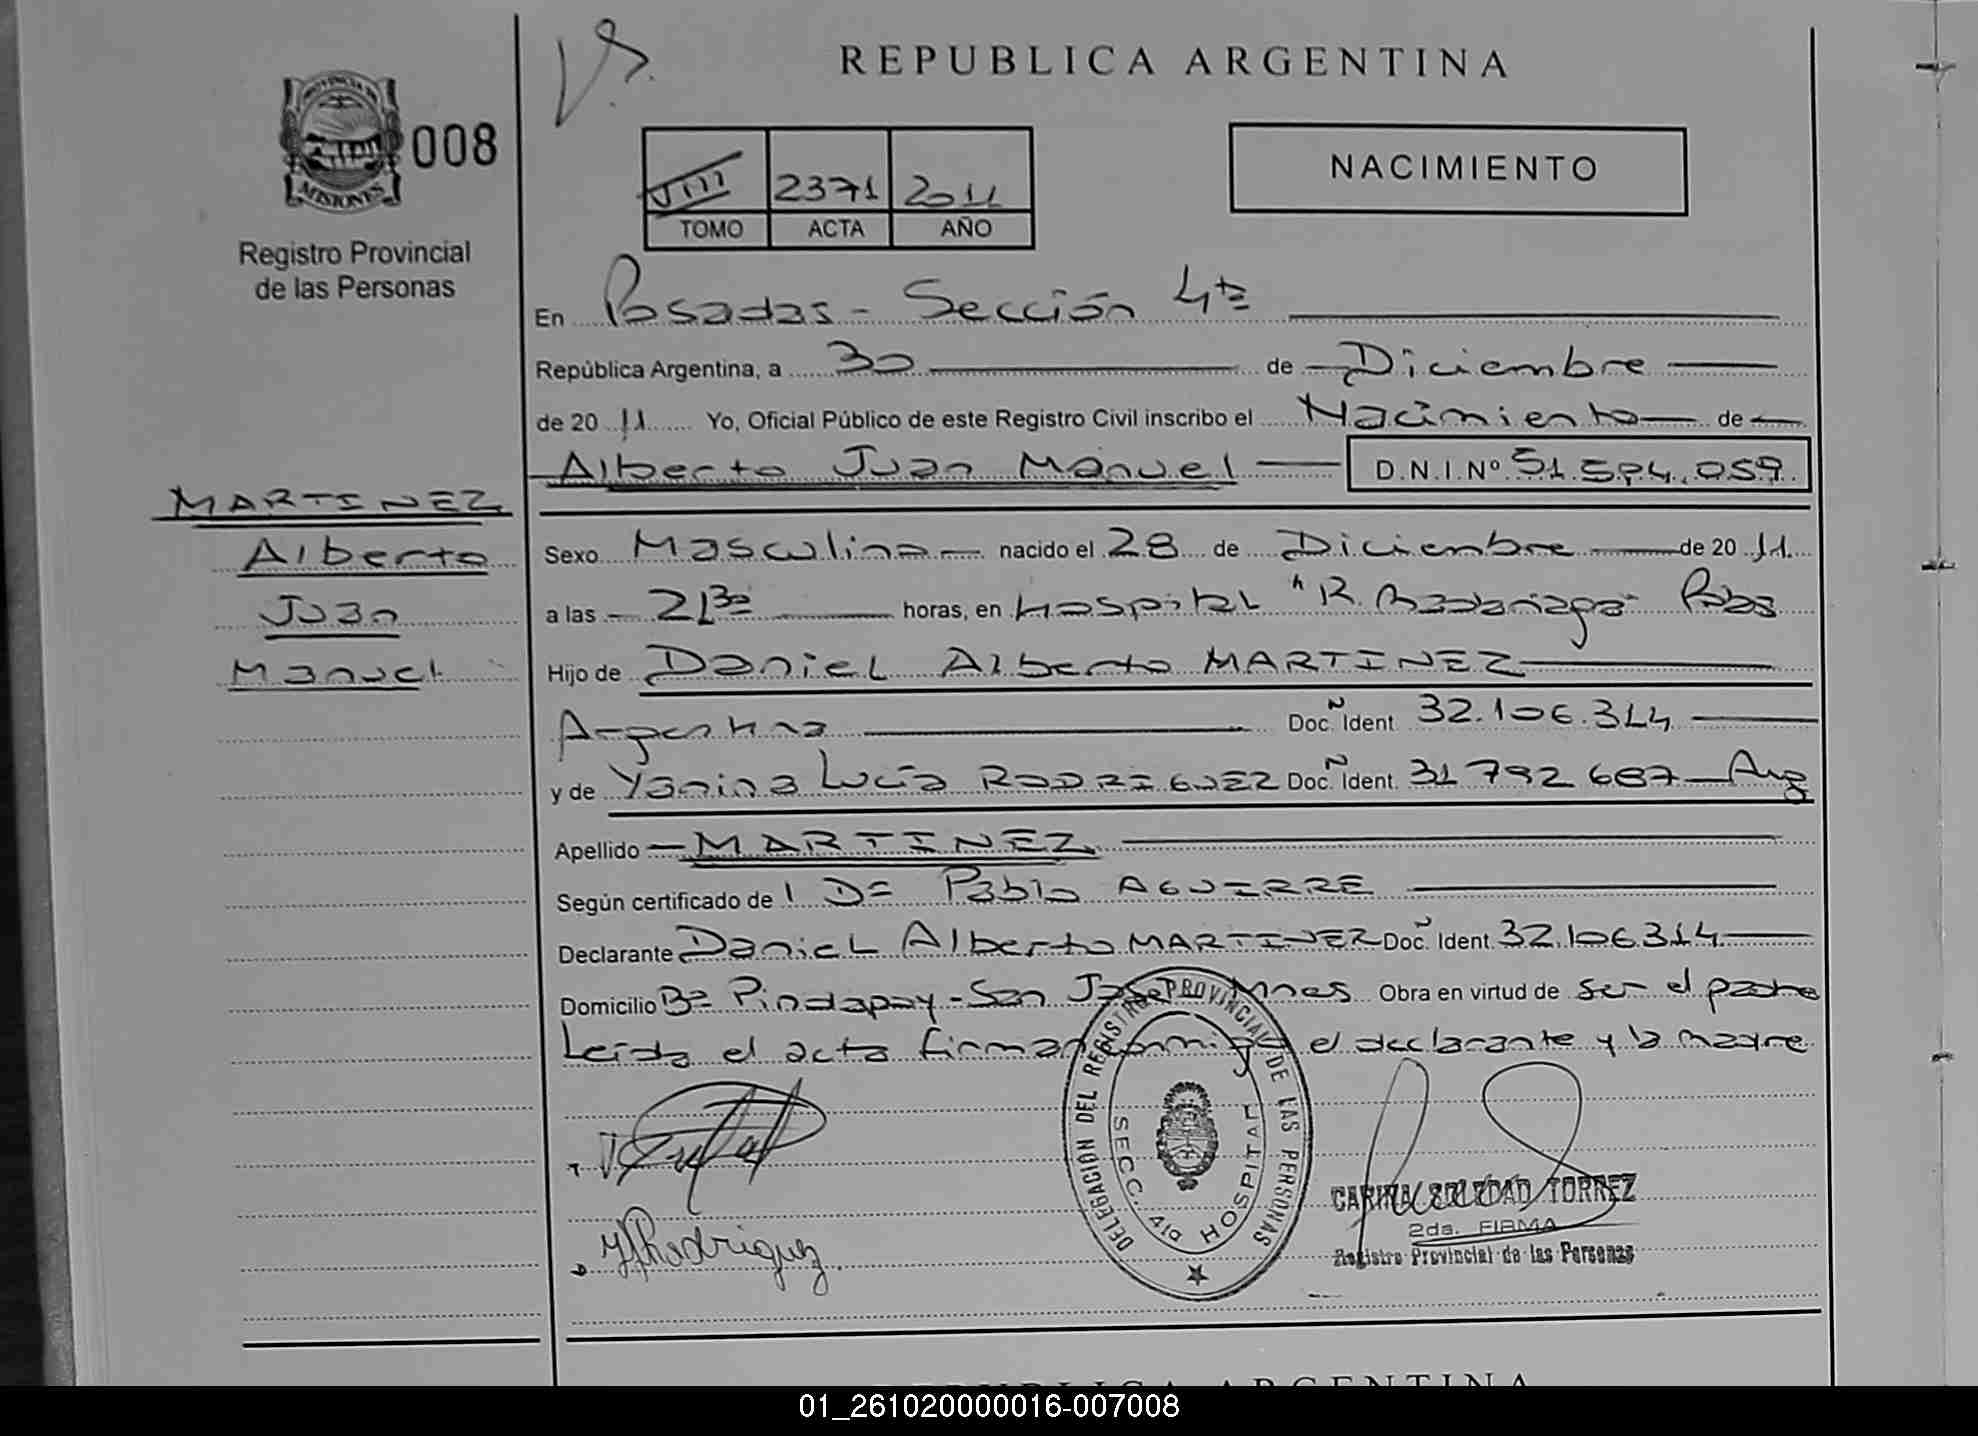 REPUBLICA ARGENTINA
PROVINCIA DE
MISIONES
008
Registro Provincial
de las Personas
VIII 2371 2011
TOMO ACTA AÑO
NACIMIENTO
En Posadas - Sección 4ta
República Argentina, a 30 de Diciembre
de 2011 Yo, Oficial Público de este Registro Civil inscribo el Nacimiento de
Alberto Juan Manuel D.N.I.Nº 51.594.059
MARTINEZ
Alberto
Juan
Manuel
Sexo Masculino nacido el 28 de Diciembre de 2011
a las 21 30 horas, en Hospital "R. Madariaga" Pdas
Hijo de Daniel Alberto MARTINEZ
Argentina Doc. Ident. 32.106.314
y de Yanina Lucía RODRIGUEZ Doc. Ident. 31 792 687 - Arg
Apellido MARTINEZ
Según certificado de l Dr Pablo AGUIRRE
Declarante Daniel Alberto MARTINEZ Doc. Ident. 32.106.314
Domicilio Bº Pindapoy - San José Mnes Obra en virtud de ser el padre
Leída el acta firman conmigo el declarante y la madre
DELEGACION DEL REGISTRO PROVINCIAL DE LAS PERSONAS
SECC. 4ta HOSPITAL
YLRodriguez
CARINA SOLEDAD TORREZ
2da. FIRMA
Registro Provincial de las Personas
REPUBLICA ARGENTINA
01_261020000016-007008